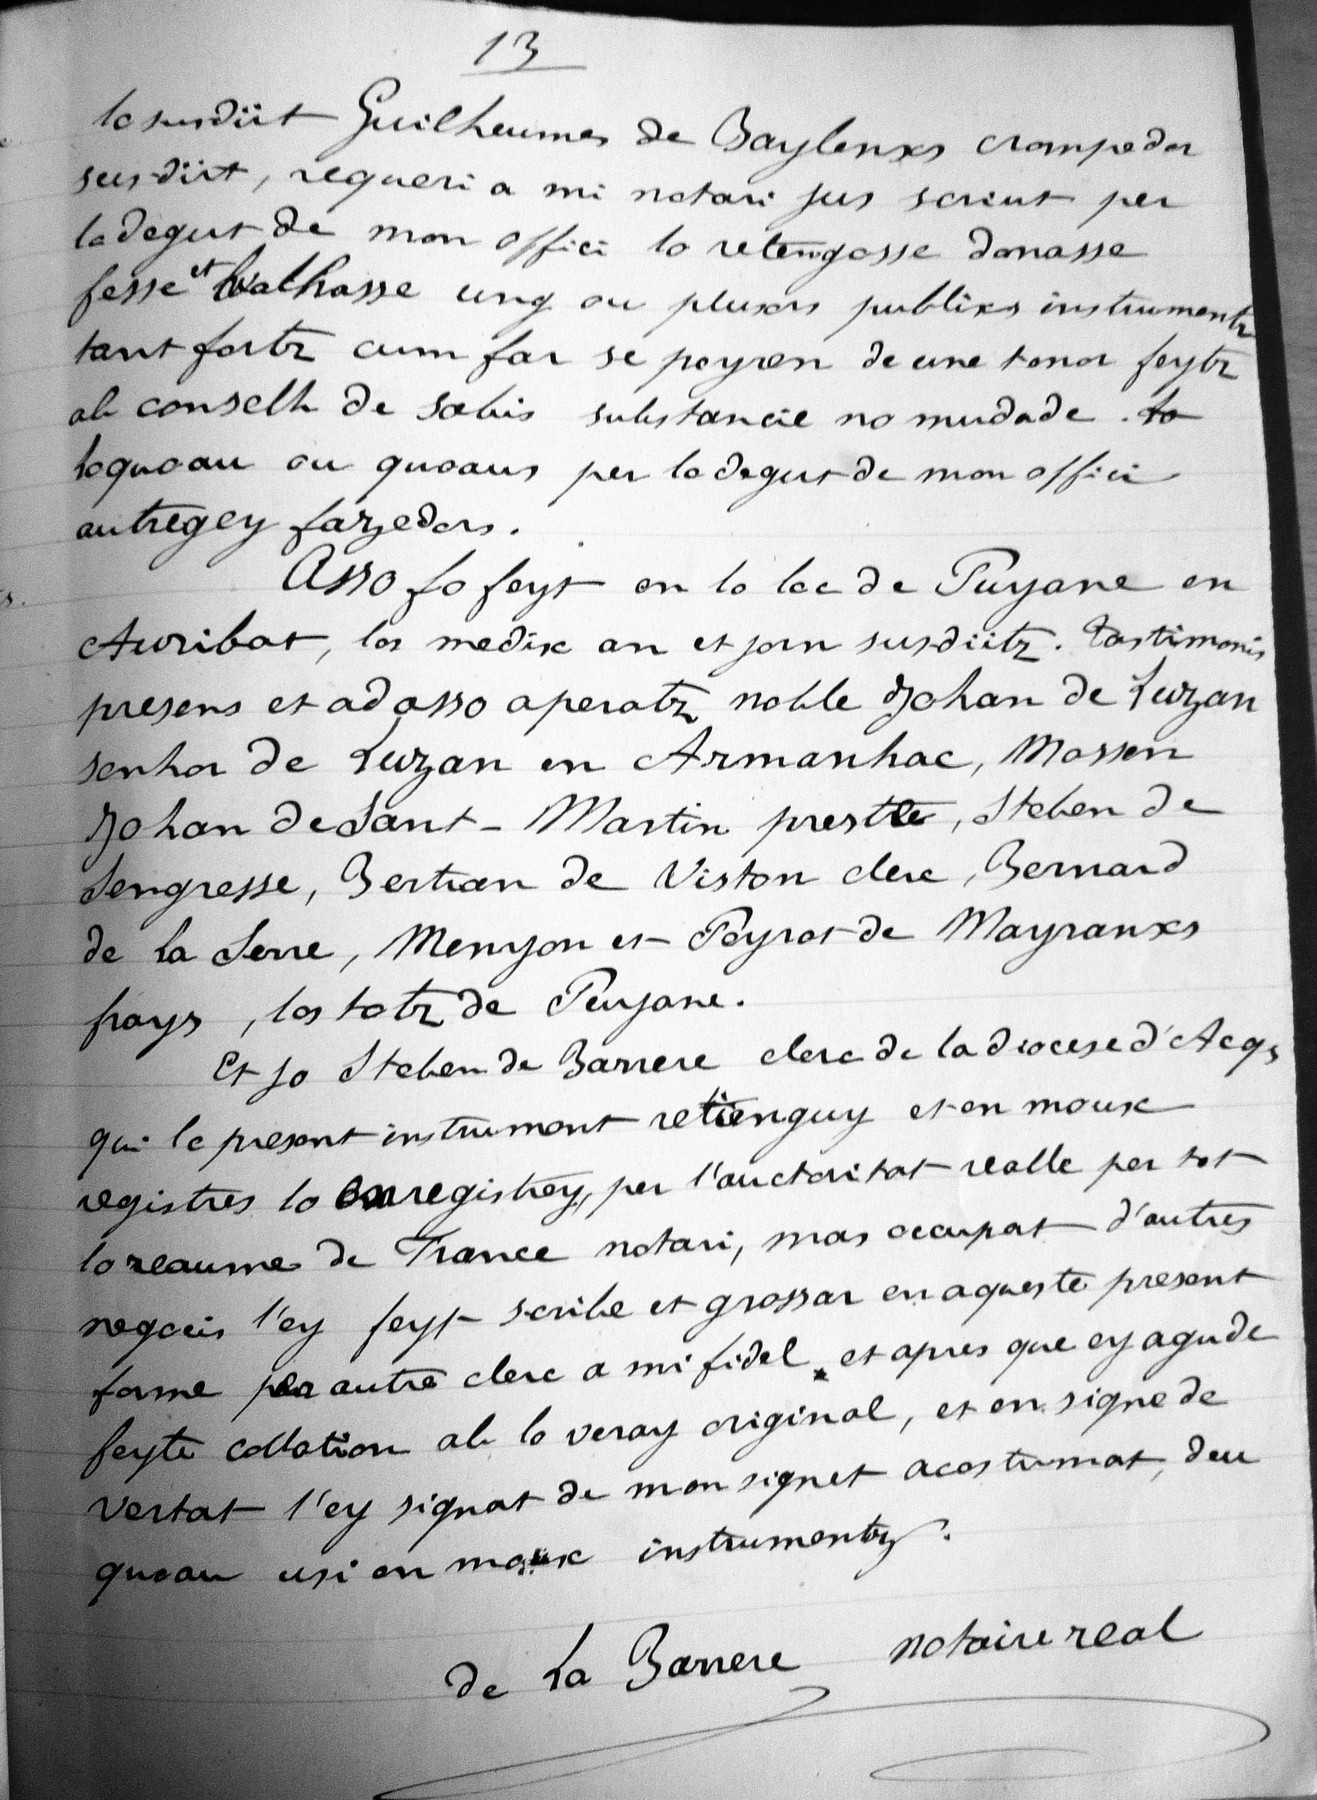 13
lo susdiit Guilheumes de Baylenxs crompedor
susdiit, requeri a mi notari jus scriut per
lo degut de mon offici lo retengosse donasse
fesse et balhasse ung ou plusors publixs instrumentz
tant fortz cum far se poyren de une tenor feytz
ab conselh de sabis substancie no mudade. lo
loquoau ou quoaus per lo degut de mon offici
autregey fazedors.
Asso fo feyt en lo loc de Puyane en
Auribat, los medix an et jorn susdiitz. Testimonis
presens et ad asso aperatz noble Johan de Luzan
senhor de Luzan en Armanhac, Mossen
Johan de Sant-Martin prestre, Steben de
Sengresse, Bertran de Viston clerc, Bernard
de la Serre, Menyon et Peyrot de Mayranxs
frays, los totz de Puyane.
Et jo Steben de Barrere clerc de la diocese d'Acqs
qui lo present instrument retienguy et en moux
registres lo enregistrey, per l'auctoritat realle per tot
lo reaume de France notari, mas occupat d'autres
negocis l'ey feyt scribe et grossar en aqueste present
forme per autre clerc a mi fidel et apres que ey agude
feyte collation ab lo veray original, et en signe de
vertat l'ey signat de mon signet acostumat, deu
quoau usi en moux instrumentz.
de La Barrere notaire real